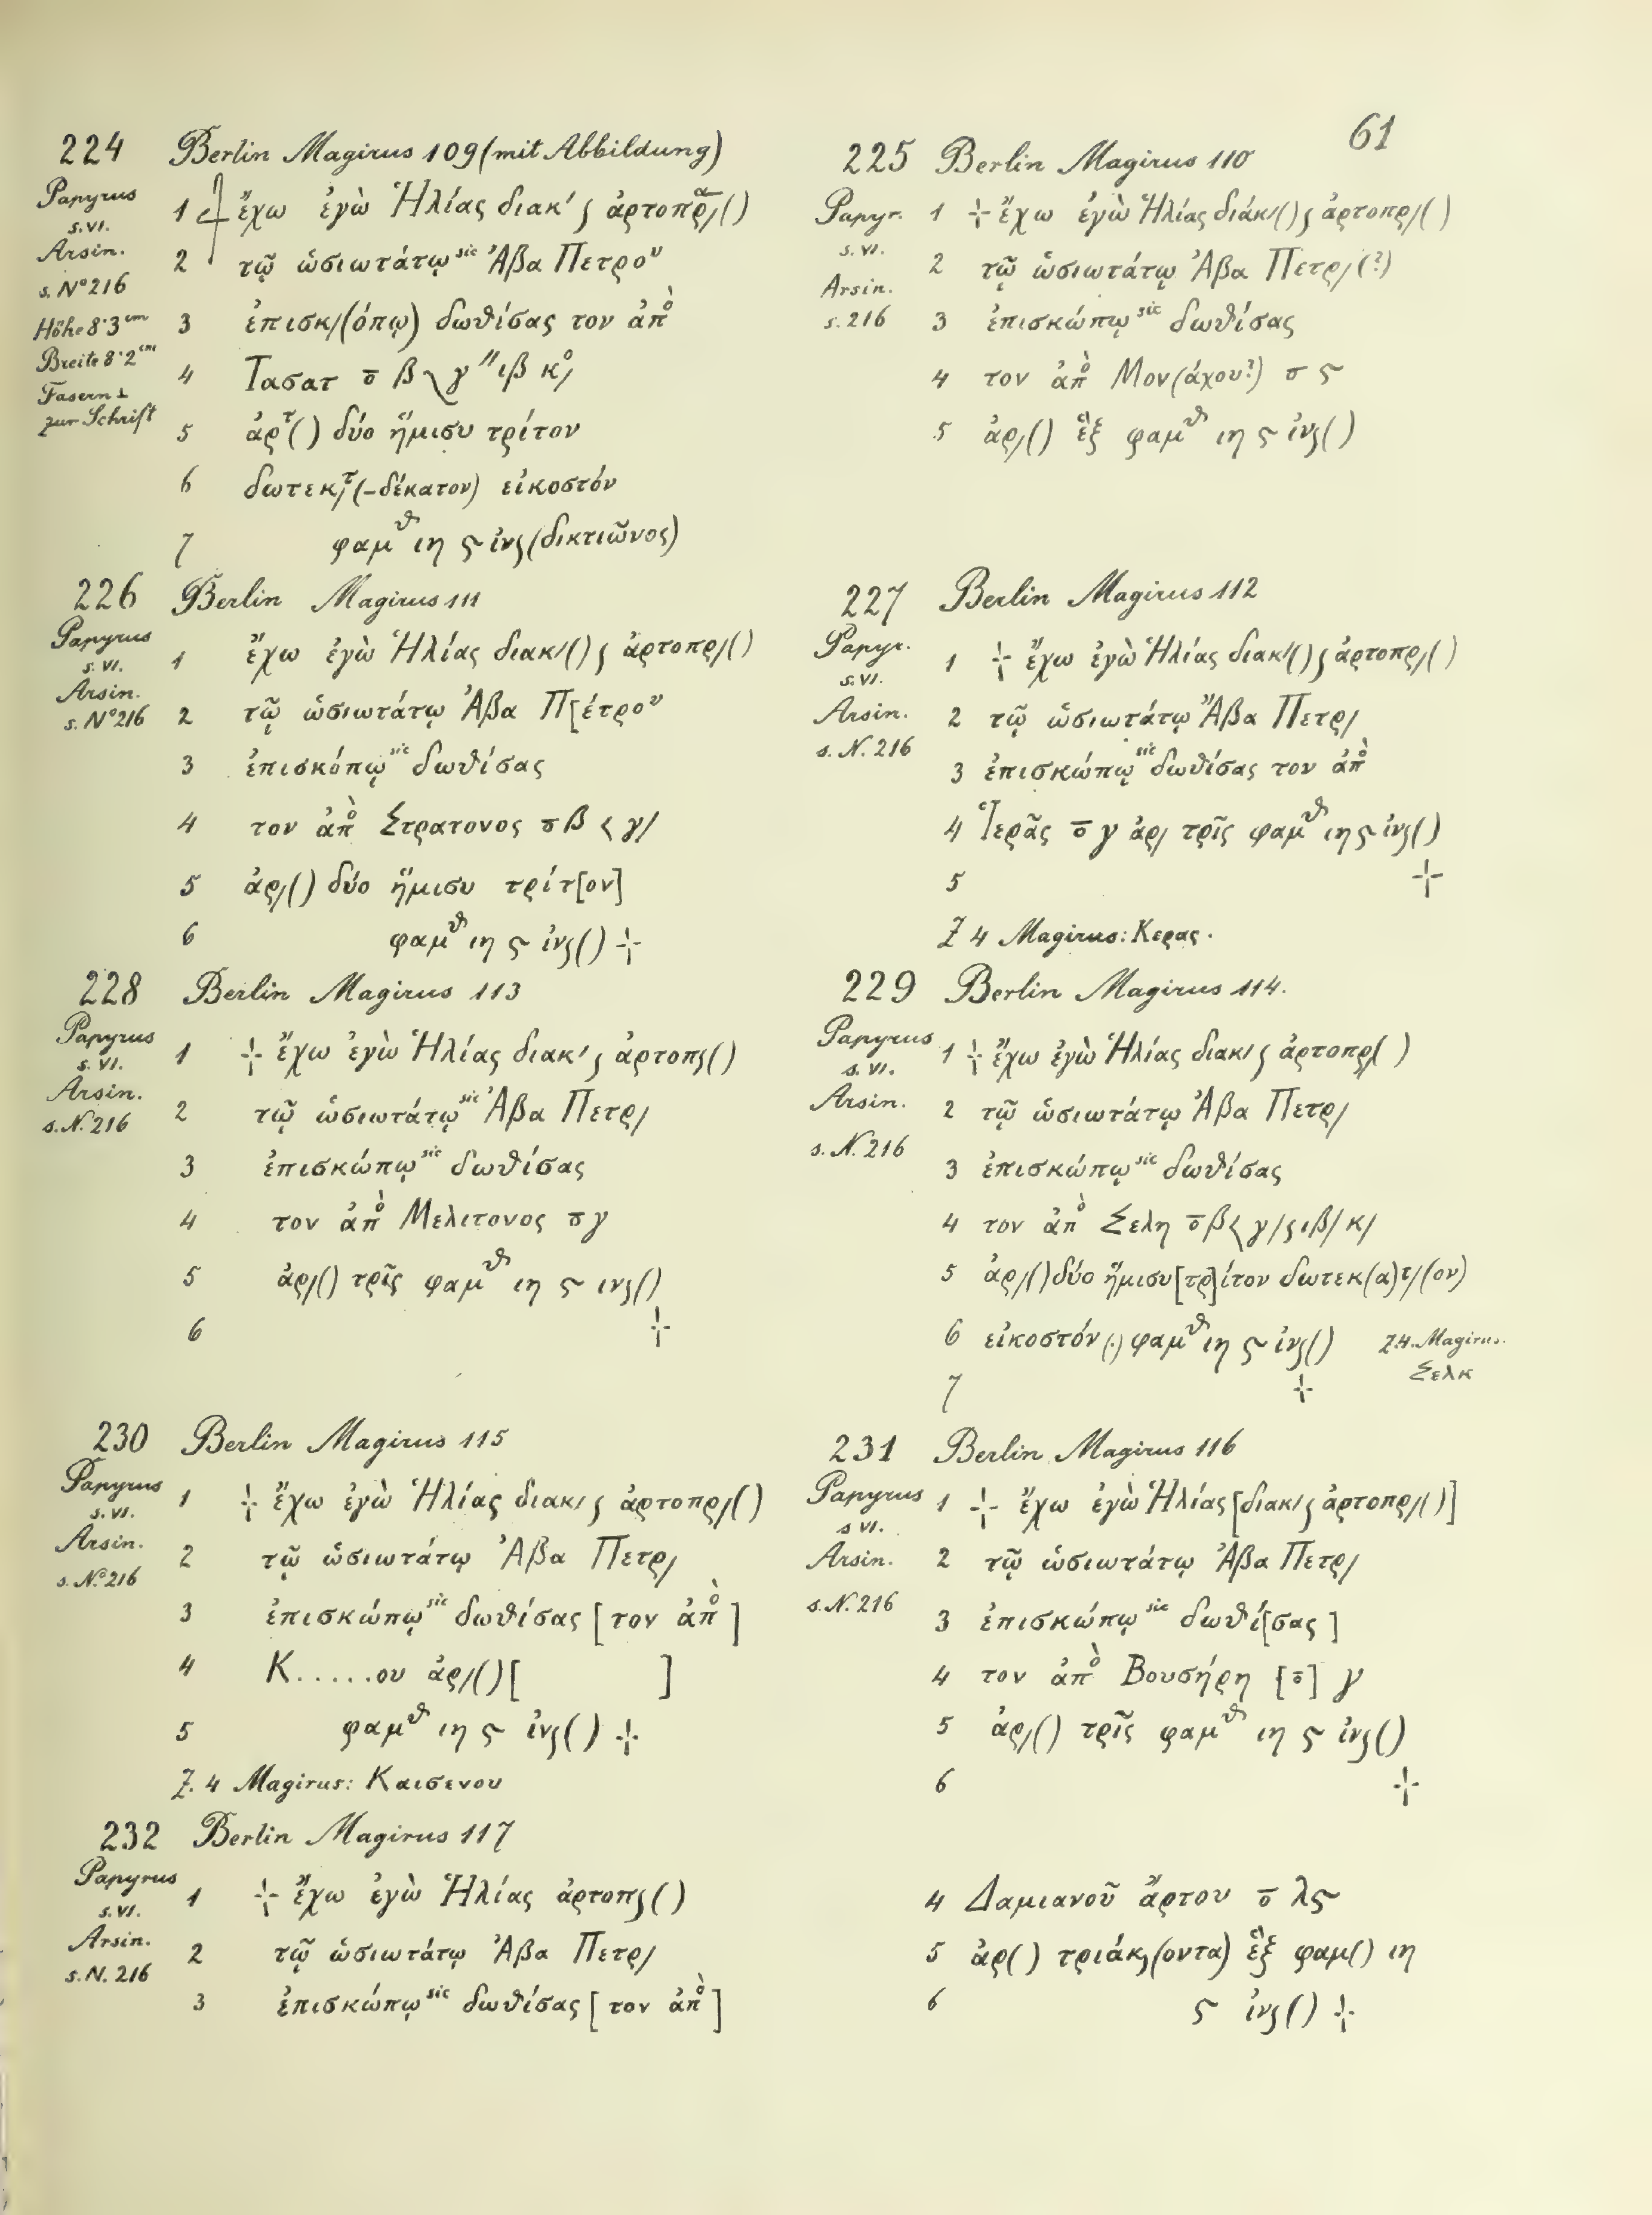 61
224 Berlin Magirus 109 (mit Abbildung)
Papyrus
s. VI.
Arsin.
s. N° 216
Höhe 8·3 cm
Breite 8·2 cm
Fasern ⊥
zur Schrift
1 ⳨ ἔχω ἐγὼ Ἡλίας διακ' ϛ ἀρτοπρα/()
2 τῷ ὡσιωτάτῳ sic Ἄβα Πετροʋ
3 ἐπισκ/(όπῳ) δωθίσας τον ἀπὸ
4 Τασατ σ̄ β 𐅵 γ'' ιβ κο/
5 ἀρτ() δύο ἥμισυ τρίτον
6 δωτεκ/τ(-δέκατον) εἰκοστόν
7 φαμθ ιη ϛ ἰνϛ(δικτιῶνος)
225 Berlin Magirus 110
Papyr.
s. VI.
Arsin.
s. 216
1 ⳨ ἔχω ἐγὼ Ἡλίας διάκ/() ϛ ἀρτοπρ/()
2 τῷ ὡσιωτάτῳ Ἄβα Πετρ/(?)
3 ἐπισκώπῳ sic δωθίσας
4 τον ἀπὸ Μον(άχου?) σ ϛ
5 ἀρ/() ἓξ φαμθ ιη ϛ ἰνϛ()
226 Berlin Magirus 111
Papyrus
s. VI.
Arsin.
s. N° 216
1 ἔχω ἐγὼ Ἡλίας διακ/() ϛ ἀρτοπρ/()
2 τῷ ὡσιωτάτῳ Ἄβα Π[έτροʋ
3 ἐπισκόπῳ sic δωθίσας
4 τον ἀπὸ Στρατονος σ β 𐅵 γ/
5 ἀρ/() δύο ἥμισυ τρίτ[ον]
6 φαμθ ιη ϛ ἰνϛ() ⳨
227 Berlin Magirus 112
Papyr.
s. VI.
Arsin.
s. N. 216
1 ⳨ ἔχω ἐγὼ Ἡλίας διακ/() ϛ ἀρτοπρ/()
2 τῷ ὡσιωτάτῳ Ἄβα Πετρ/
3 ἐπισκώπῳ sic δωθίσας τον ἀπὸ
4 Ἱερᾶς σ̄ γ ἀρ/ τρῖς φαμθ ιη ϛ ἰνϛ()
5 ⳨
Z 4 Magirus: Κερας.
228 Berlin Magirus 113
Papyrus
s. VI.
Arsin.
s. N. 216
1 ⳨ ἔχω ἐγὼ Ἡλίας διακ' ϛ ἀρτοπϛ()
2 τῷ ὡσιωτάτῳ sic Ἄβα Πετρ/
3 ἐπισκώπῳ sic δωθίσας
4 τον ἀπὸ Μελιτονος σ γ
5 ἀρ/() τρῖς φαμθ ιη ϛ ινϛ()
6 ⳨
229 Berlin Magirus 114.
Papyrus
s. VI.
Arsin.
s. N. 216
1 ⳨ ἔχω ἐγὼ Ἡλίας διακ/ ϛ ἀρτοπρ/( )
2 τῷ ὡσιωτάτῳ Ἄβα Πετρ/
3 ἐπισκώπῳ sic δωθίσας
4 τον ἀπὸ Σελη σ̄ β 𐅵 γ/ ϛ ιβ/ κ/
5 ἀρ/() δύο ἥμισυ [τρ]ίτον δωτεκ(α)τ/(ον)
6 εἰκοστόν(.) φαμθ ιη ϛ ἰνϛ()
7 ⳨
Z. 4. Magirus.
Σελκ
230 Berlin Magirus 115
Papyrus
s. VI.
Arsin.
s. N° 216
1 ⳨ ἔχω ἐγὼ Ἡλίας διακ/ ϛ ἀρτοπρ/()
2 τῷ ὡσιωτάτῳ Ἄβα Πετρ/
3 ἐπισκώπῳ sic δωθίσας [τον ἀπὸ]
4 Κ......ου ἀρ/() [ ]
5 φαμθ ιη ϛ ἰνϛ() ⳨
Z. 4 Magirus: Καισενου
231 Berlin Magirus 116
Papyrus
s VI.
Arsin.
s. N. 216
1 ⳨ ἔχω ἐγὼ Ἡλίας [διακ/ ϛ ἀρτοπρ/()]
2 τῷ ὡσιωτάτῳ Ἄβα Πετρ/
3 ἐπισκώπῳ sic δωθί[σας]
4 τον ἀπὸ Βουσήρη [σ̄] γ
5 ἀρ/() τρῖς φαμθ ιη ϛ ἰνϛ()
6 ⳨
232 Berlin Magirus 117
Papyrus
s. VI.
Arsin.
s. N. 216
1 ⳨ ἔχω ἐγὼ Ἡλίας ἀρτοπϛ()
2 τῷ ὡσιωτάτῳ Ἄβα Πετρ/
3 ἐπισκώπῳ sic δωθίσας [τον ἀπὸ]
4 Δαμιανοῦ ἄρτου σ̄ λϛ
5 ἀρ() τριάκϛ(οντα) ἓξ φαμ() ιη
6 ϛ ἰνϛ() ⳨